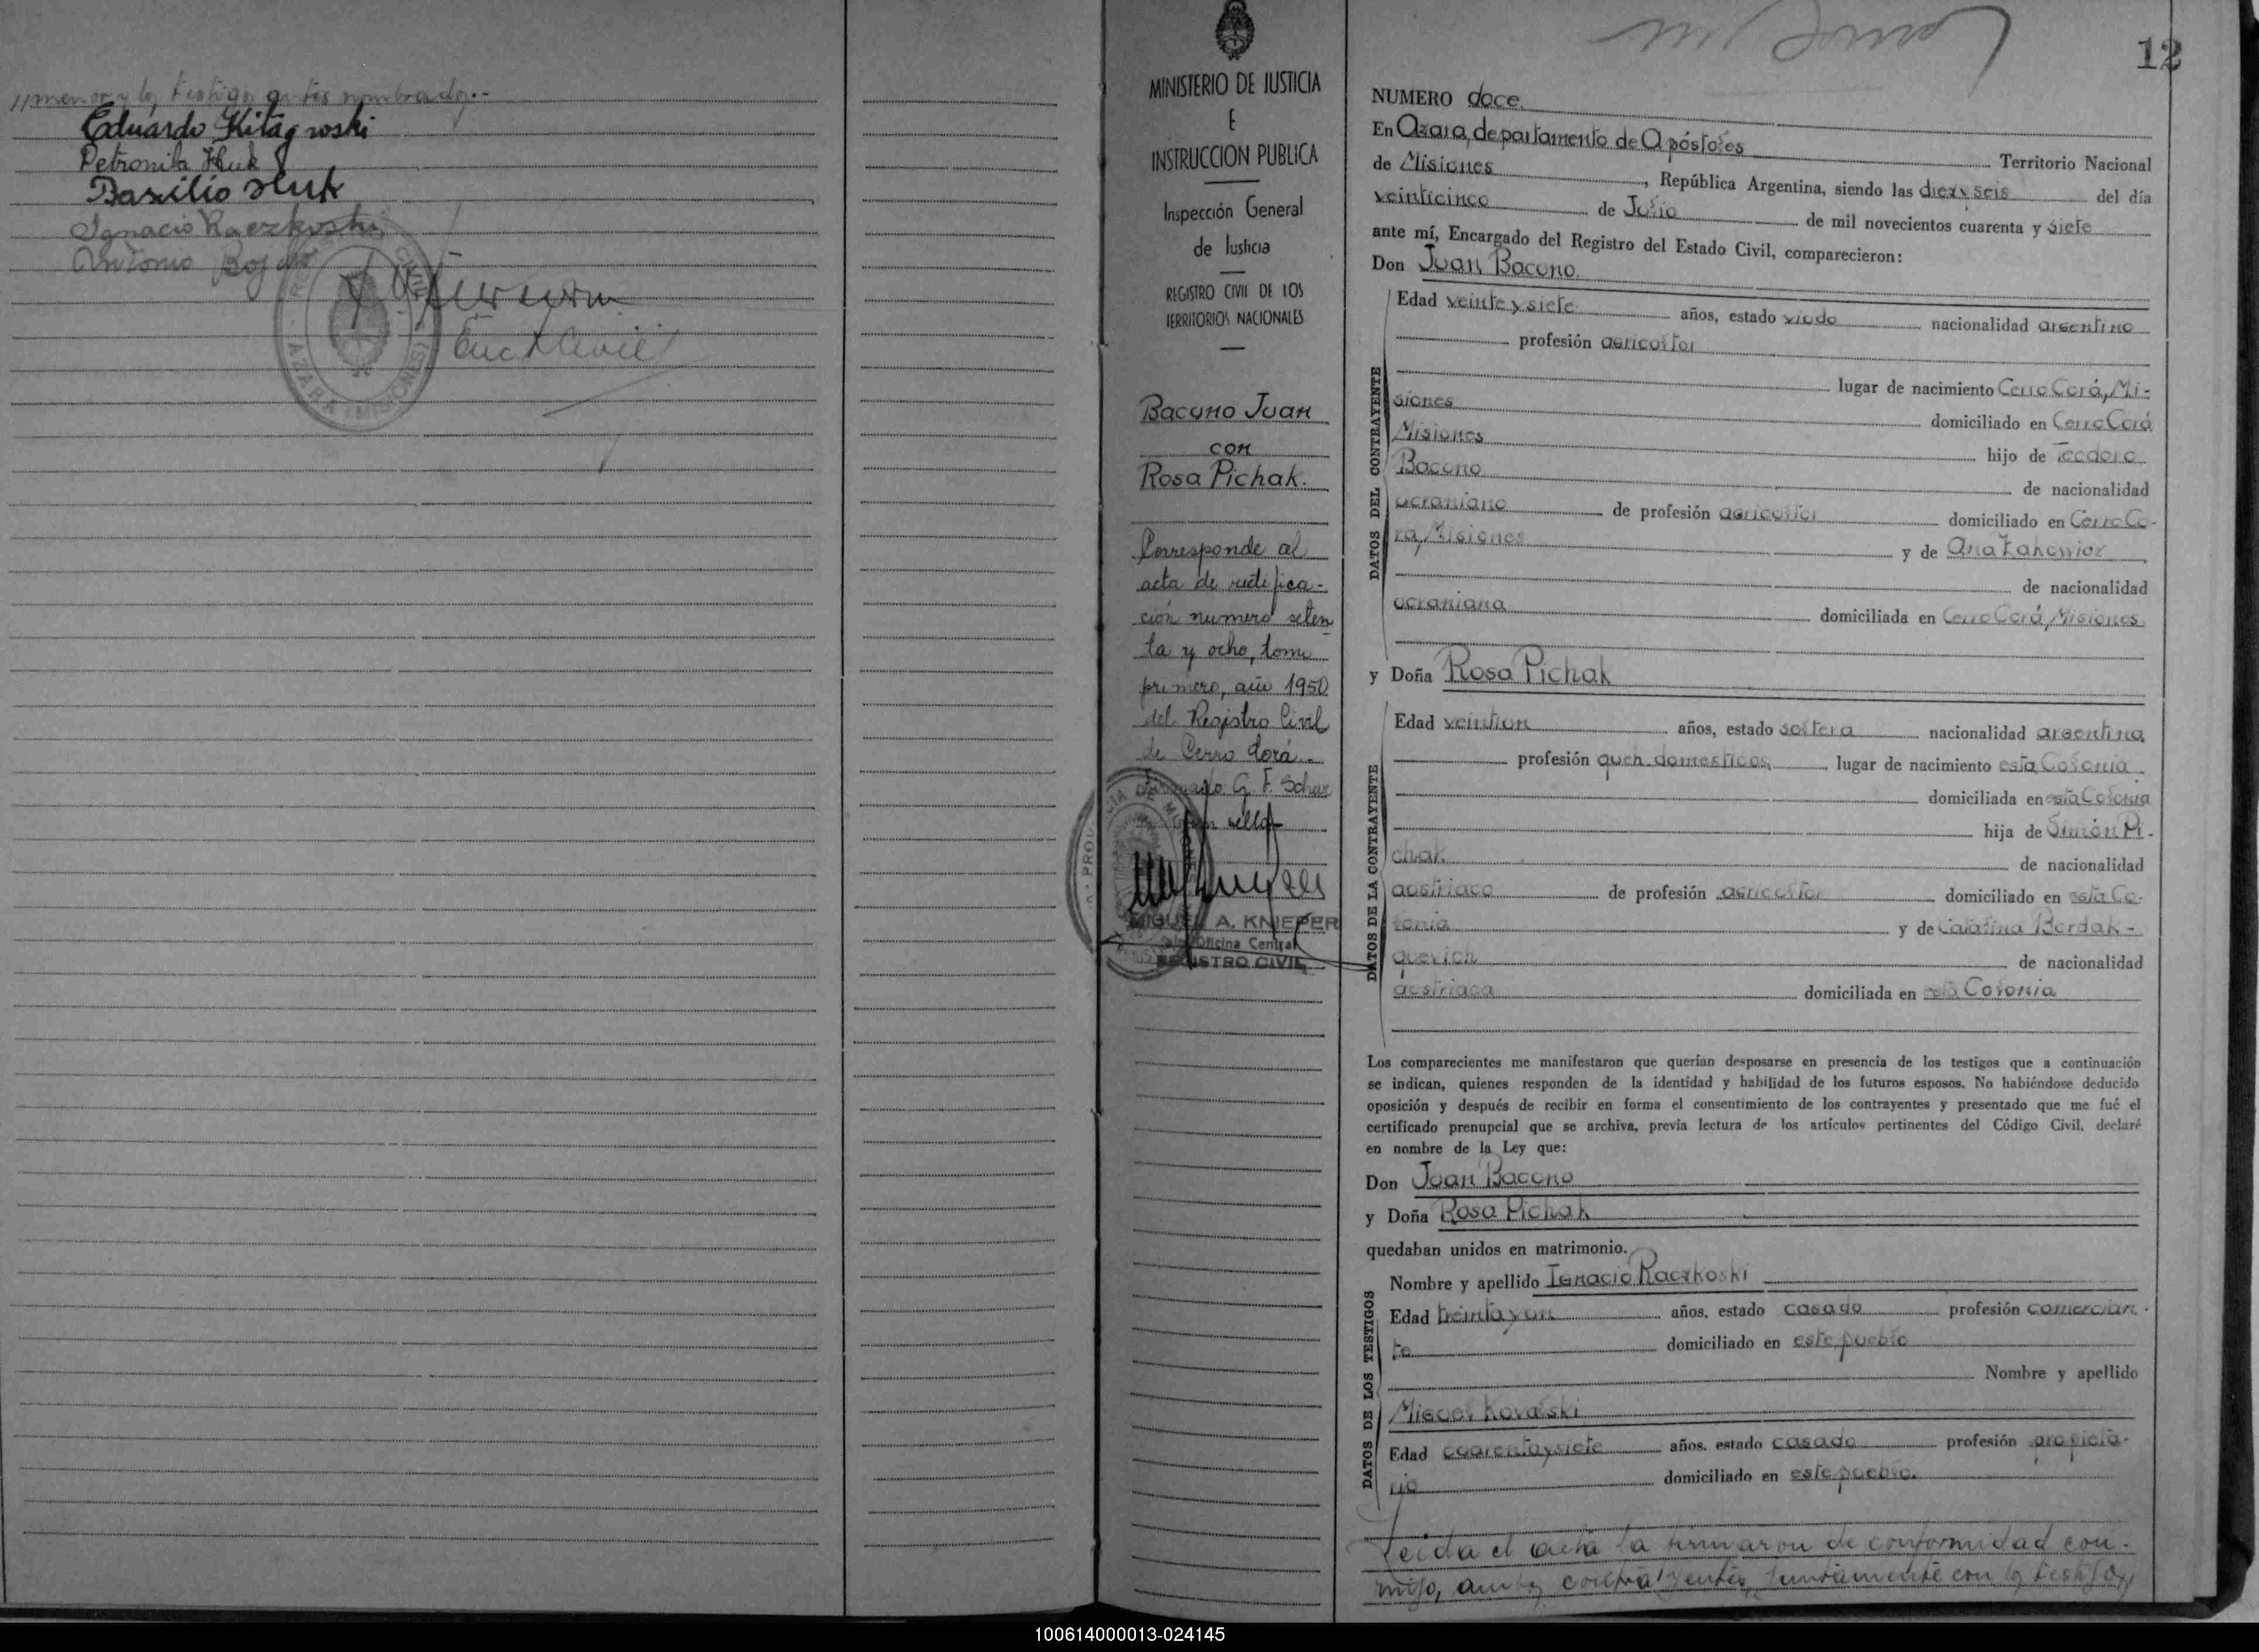 //menor y los testigos antes nombrados.-
Eduardo Kitagroski
Petronila Huk
Basilio Huk
Ignacio Raczkoski
Antonio
Enc R Civil
AZARA (MISIONES)
MINISTERIO DE JUSTICIA
E
INSTRUCCION PUBLICA
Inspección General
de Justicia
REGISTRO CIVIL DE LOS
TERRITORIOS NACIONALES
Bacuno Juan
con
Rosa Pichak.
Corresponde al
acta de rectifica-
ción numero seten
ta y ocho, tomo
primero, año 1950
del Registro Civil
de Cerro Corá..
Firmado G. F. Scher
sello
MIGUEL A. KNIEPER
Oficina Central
REGISTRO CIVIL
12
NUMERO doce.
En Azara, departamento de Apóstoles
Territorio Nacional
de Misiones, República Argentina, siendo las diez y seis del día
veinticinco de Julio de mil novecientos cuarenta y siete
ante mí, Encargado del Registro del Estado Civil, comparecieron:
Don Juan Bacuno.
DATOS DEL CONTRAYENTE
Edad veinte y siete años, estado viudo nacionalidad argentino
profesión agricultor
lugar de nacimiento Cerro Corá, Mi-
siones domiciliado en Cerro Corá
Misiones hijo de Teodoro
Bacuno de nacionalidad
ucraniano de profesión agricultor domiciliado en Cerro Co-
rá, Misiones y de Ana Zakowicz
de nacionalidad
ucraniana domiciliada en Cerro Corá, Misiones
y Doña Rosa Pichak
DATOS DE LA CONTRAYENTE
Edad veintiun años, estado soltera nacionalidad argentina
profesión queh. domesticos, lugar de nacimiento esta Colonia
domiciliada en esta Colonia
hija de Simón Pi-
chak de nacionalidad
austriaco de profesión agricultor domiciliado en esta Co-
lonia y de Catalina Bordak-
quevich de nacionalidad
austriaca domiciliada en esta Colonia
Los comparecientes me manifestaron que querían desposarse en presencia de los testigos que a continuación
se indican, quienes responden de la identidad y habilidad de los futuros esposos. No habiéndose deducido
oposición y después de recibir en forma el consentimiento de los contrayentes y presentado que me fué el
certificado prenupcial que se archiva, previa lectura de los artículos pertinentes del Código Civil, declaré
en nombre de la Ley que:
Don Juan Bacuno
y Doña Rosa Pichak
quedaban unidos en matrimonio.
DATOS DE LOS TESTIGOS
Nombre y apellido Ignacio Raczkoski
Edad treinta y un años, estado casado profesión comercian-
te domiciliado en este pueblo
Nombre y apellido
Miguel Kovalski
Edad cuarenta y siete años, estado casado profesión propieta-
rio domiciliado en este pueblo.
Leida el acta la firmaron de conformidad con-
migo, ambos contrayentes, juntamente con los testigos,
100614000013-024145